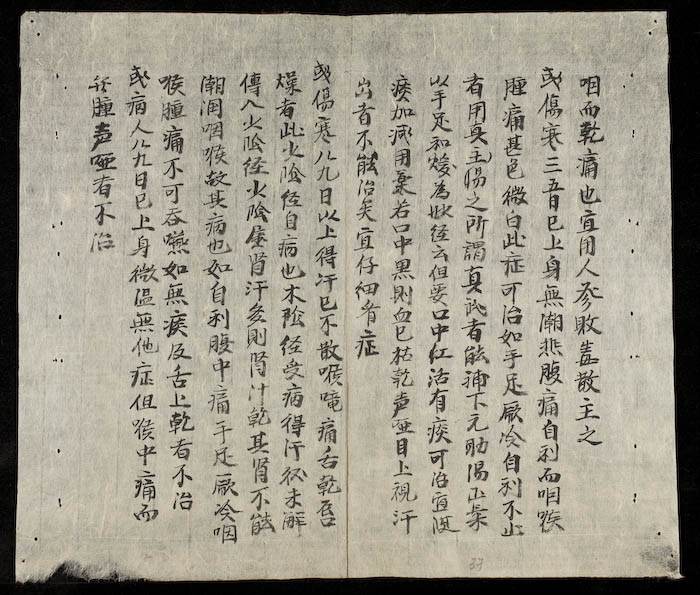 咽而乾痛也宜用人參敗毒散主之
或傷寒三五日已上身無潮热腹痛自利而咽喉
腫痛甚色微白此症可治如手足厥冷自利不止
者用真主湯之所謂真武者能補下元助陽正氣
以手足和煖為効経云但要口中红活有痰可治宜逐
痰加減用藥若口中黒則血已枯乾声哑目上視汗
出者不能治矣宜仔细看症
或傷寒八九日以上得汗已不散喉嚨痛舌乾唇
燥者此火陰经自病也木陰经受病得汗终未觧
傳入火陰经火陰屋肾汗多則肾汁乾其肾不能
潮润咽喉故其病也如自利腹中痛手足厥冷咽
喉腫痛不可吞嚥如無痰及舌上乾者不治
或病人八九日已上身微温無他症但喉中痛而
腫声哑者不治
33